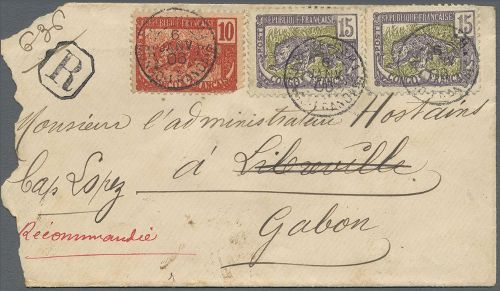 636
R
RÉPUBLIQUE FRANÇAISE 10
RÉPUBLIQUE FRANÇAISE 15
RÉPUBLIQUE FRANÇAISE 15
POSTES
CONGO FRANÇAIS
6
JANV
Monsieur l'administrateur Hostains
à Libreville
Cap Lopez
Gabon
Récommandée